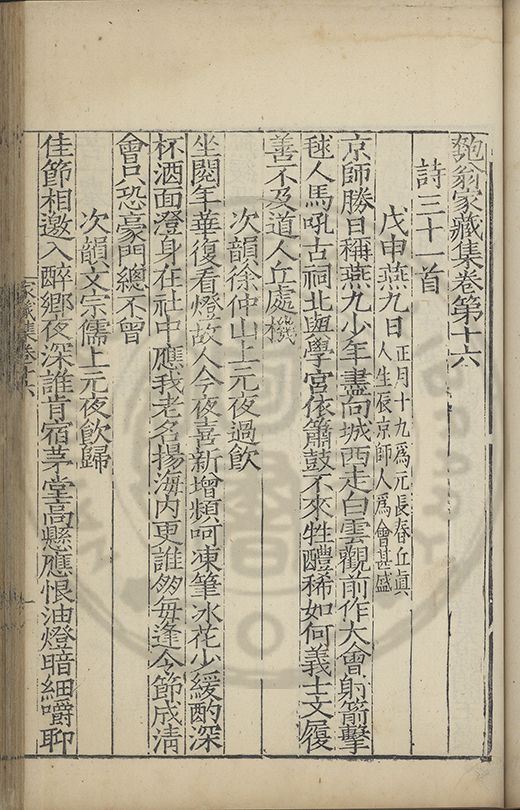 匏翁家藏集卷第十六
詩三十一首
戊申燕九日正月十九爲元長春丘眞
人生辰京師人爲會甚盛
京師勝日稱燕九少年盡向城西走白雲觀前作大會射箭擊
毬人馬吼古祠北與學宮依簫鼓不來牲醴稀如何義士文履
善不及道人丘處機
次韻徐仲山上元夜過飲
坐閱年華復看燈故人今夜喜新增頻呵凍筆冰花少緩酌深
杯酒面澄身在社中應我老名揚海内更誰夘毎逢令節成淸
會只恐豪門總不曾
次韻文宗儒上元夜飲歸
佳節相邀入醉鄉夜深誰肯宿茅堂高懸應恨油燈暗細嚼聊
家藏集卷十六